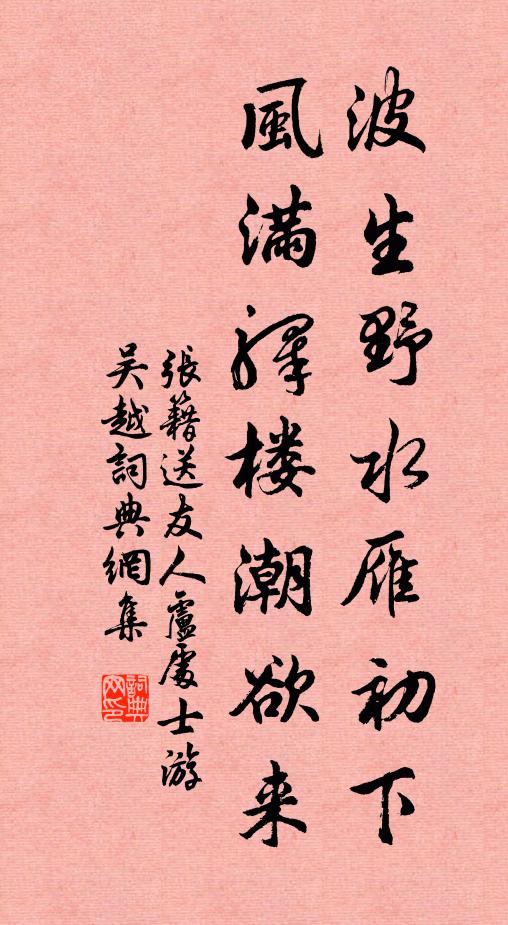 波生野水雁初下
風滿驛楼潮欲来
張籍送友人盧處士游
吴越詞典網集
詞典网印